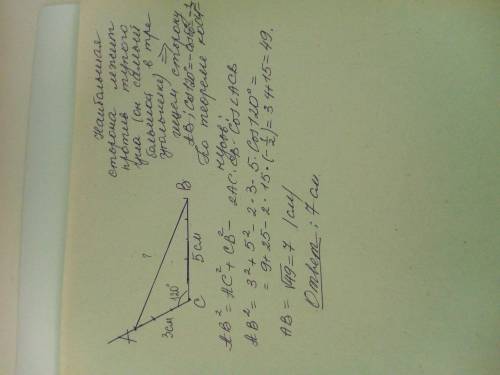 Наибольшая
сторона лежит
против тупого
угла (он самый
большой в тре
угольнике) ⇒
ищем сторону
AB; Cos120°=-Cos60°=-1/2
По теореме косинусов:
A
3см
120°
C
5 см
B
?
AB²=AC²+CB²- 2AC·CB·Cos∠ACB
AB²=3²+5²-2·3·5·Cos120°=
=9+25-2·15·(-1/2)=34+15=49.
AB=√49=7 (см)
Ответ: 7 см.